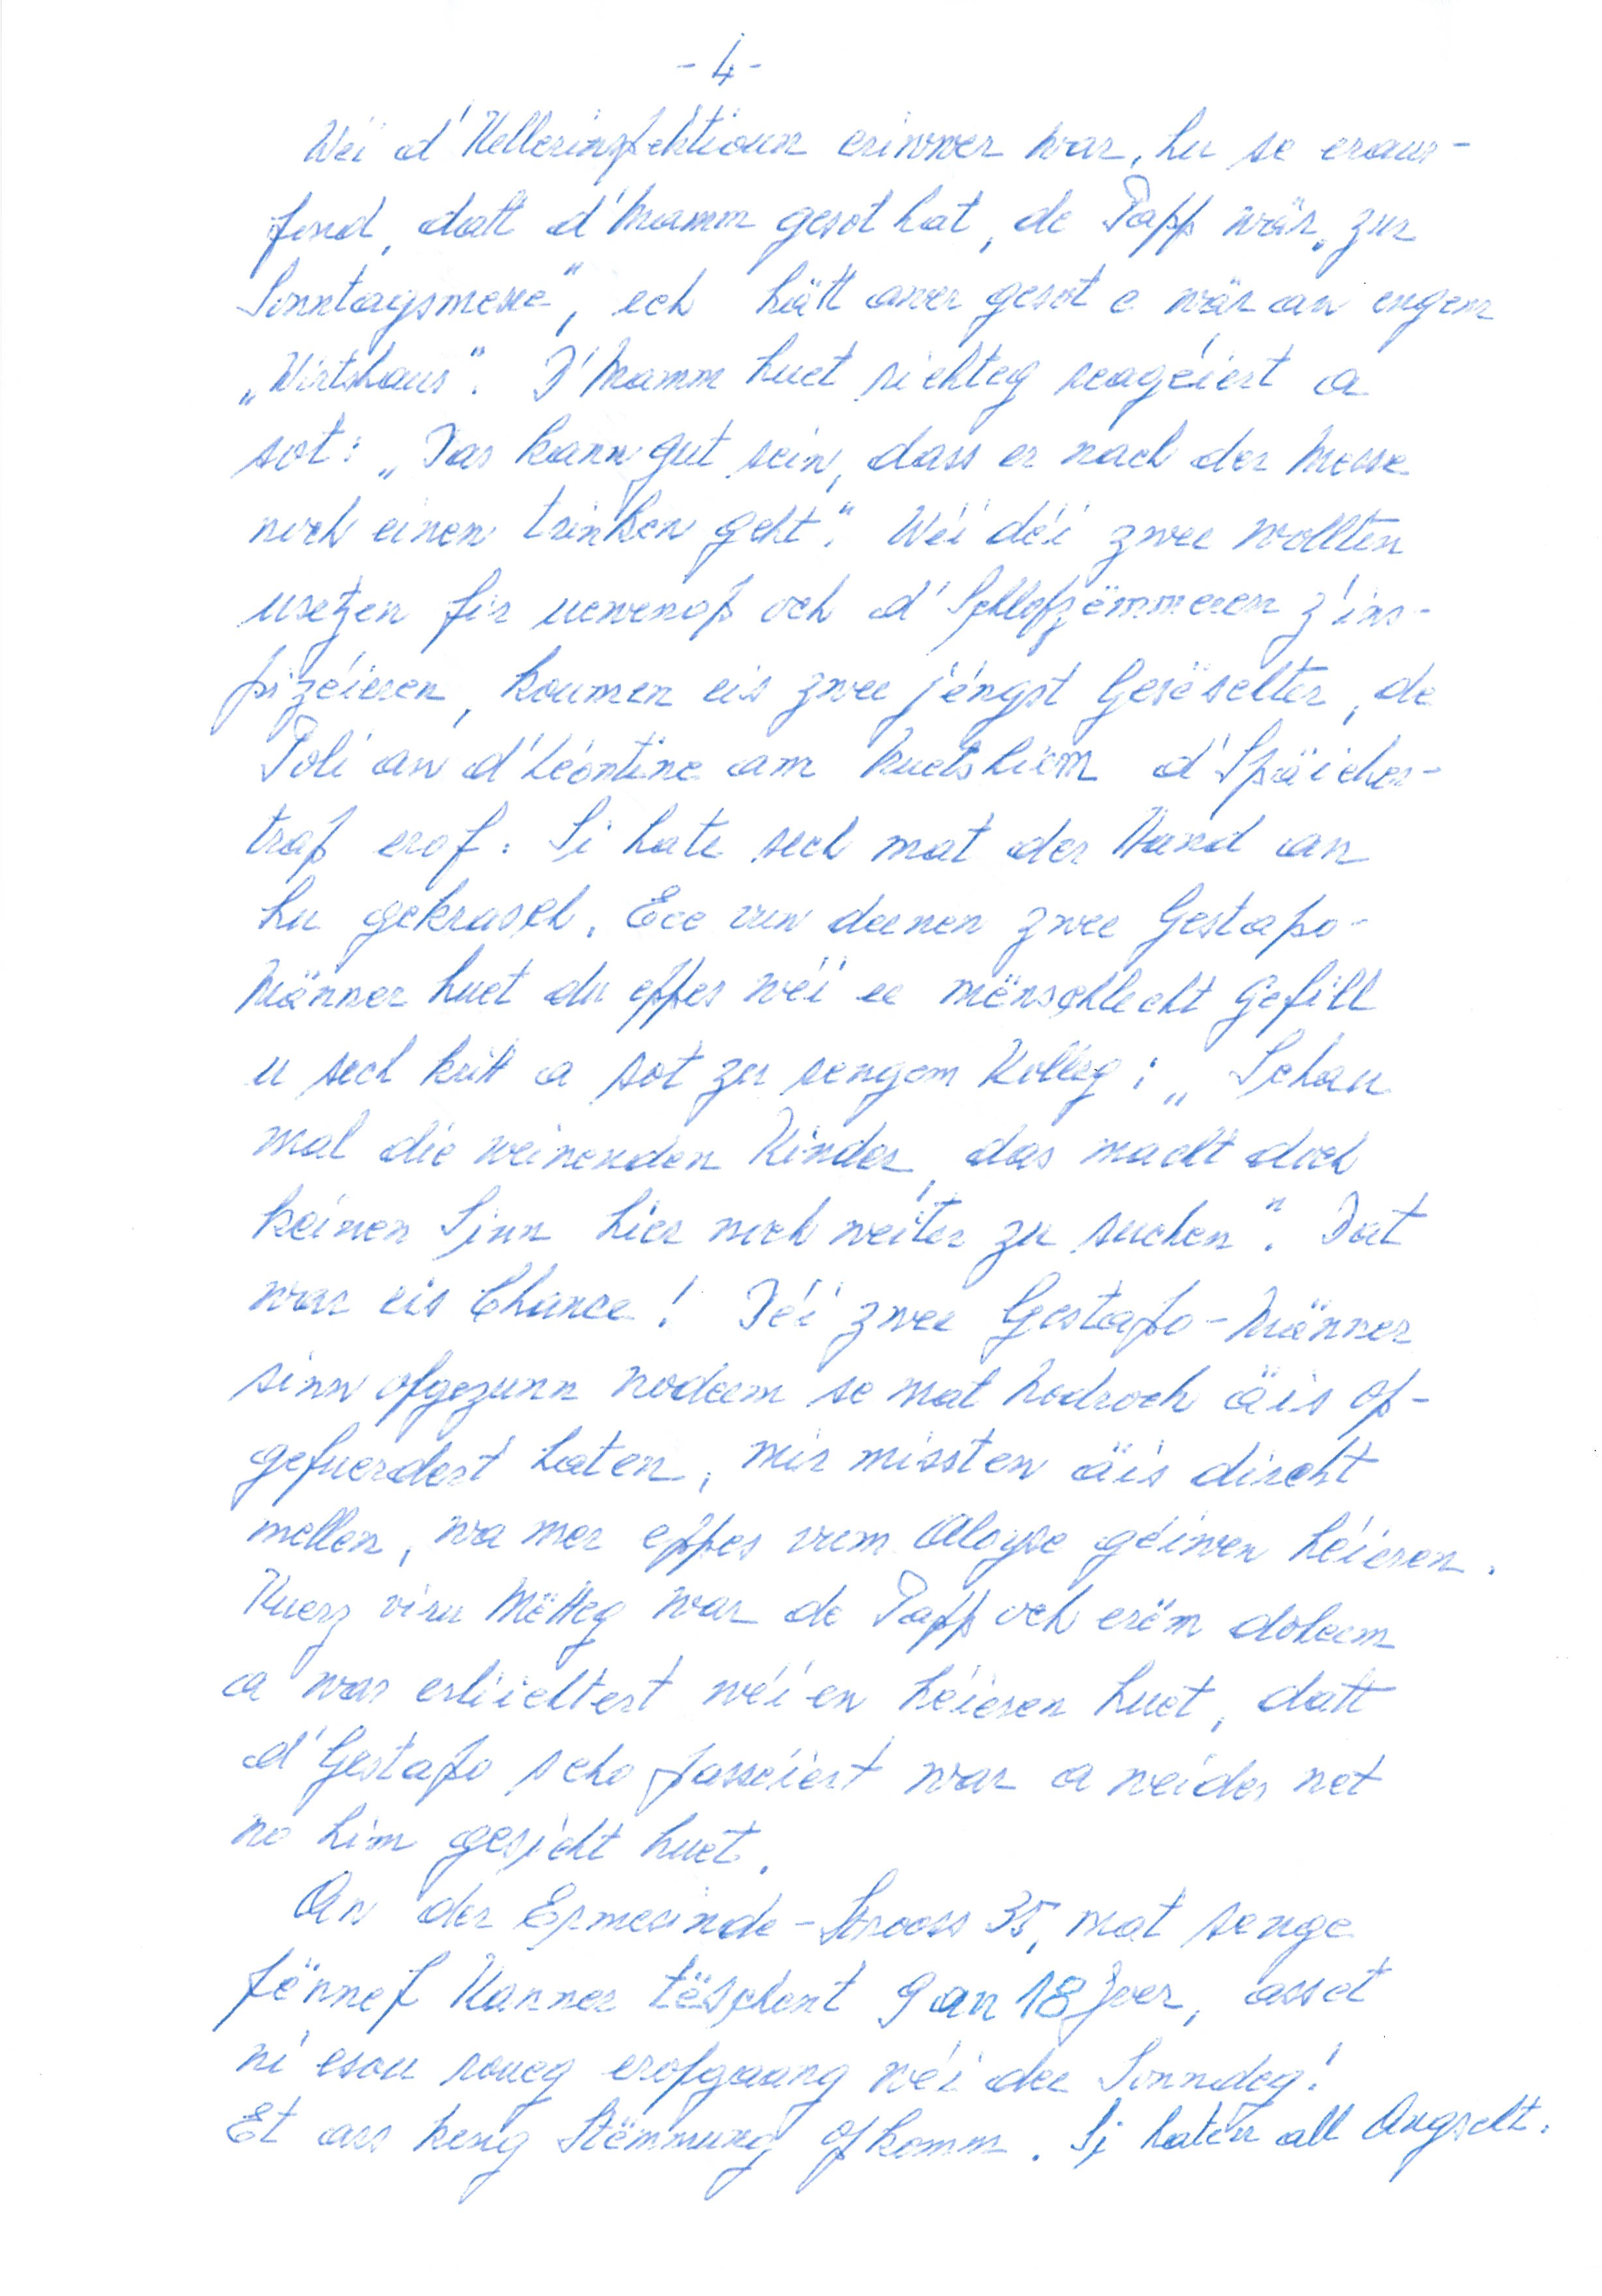 - 4 -
Wéi d'Kellerinspektioun eriwwer war, hu se eraus-
fond, datt d'Mamm gesot hat, de Papp wär „zur
Sonntagsmesse", ech hätt awer gesot e wär an engem
„Wirtshaus". D'Mamm huet richteg reagéiert a
sot: „Das kann gut sein, dass er nach der Messe
noch einen trinken geht". Wéi déi zwee wollten
usetzen fir uewenop och d'Schlofzëmmeren z'ins-
pizéieren, koumen eis zwee jéngst Geschwëster, de
Poli an d'Léontine am Nuetshiem d'Späicher-
trap erof. Si hate sech mat der Hand an
hu gekrasch. Ee vun deenen zwee Gestapo-
Männer huet du eppes wéi ee mënschlecht Gefill
u sech kritt a sot zu sengem Kolleg: „Schau
mal die weinenden Kinder, das macht doch
keinen Sinn hier noch weiter zu suchen". Dat
war eis Chance! Déi zwee Gestapo-Männer
sinn ofgezunn nodeem se mat Nodrock äis op-
gefuerdert haten, mir missten äis direkt
mellen, wa mer eppes vum Aloyse géiwen héieren.
Kuerz viru Mëtteg war de Papp och erëm doheem
a war erliichtert wéi en héieren huet, datt
d'Gestapo scho passéiert war a weider net
no him gesicht huet.
An der Ermesinde-Strooss 35, mat senge
fënnef Kanner tëschent 9 an 18 Joer, asset
ni esou roueg erofgaang wéi dee Sonndeg!
Et ass keng Stëmmung opkomm. Si haten all Angscht.